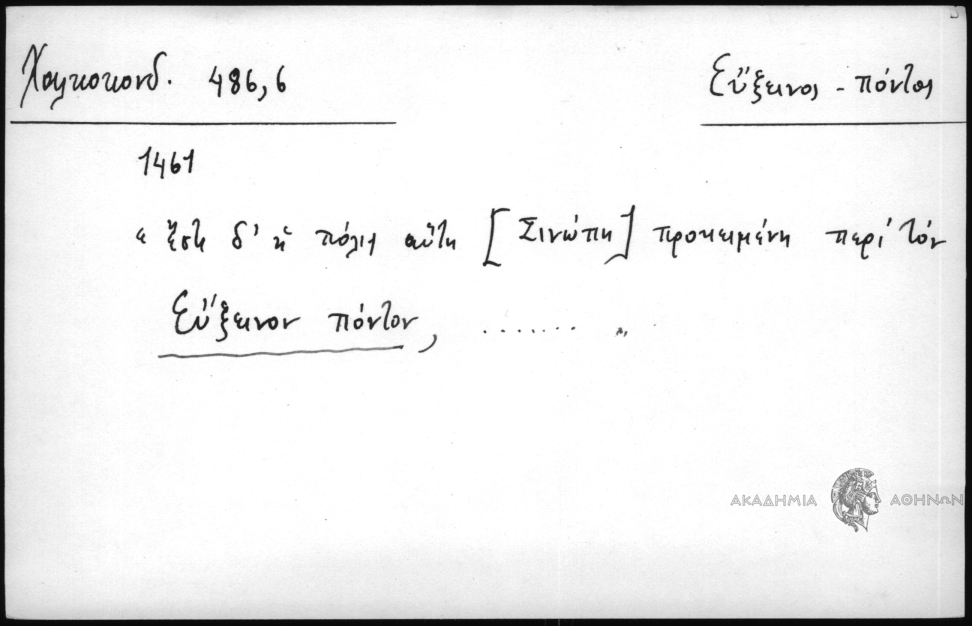 Χαλκοκονδ. 486,6
Εὔξεινος - πόντος
1461
« ἔστι δ' ἡ πόλις αὕτη [Σινώπη] προκειμένη περὶ τὸν
Εὔξεινον πόντον, ....... »
ΑΚΑΔΗΜΙΑ ΑΘΗΝΩΝ